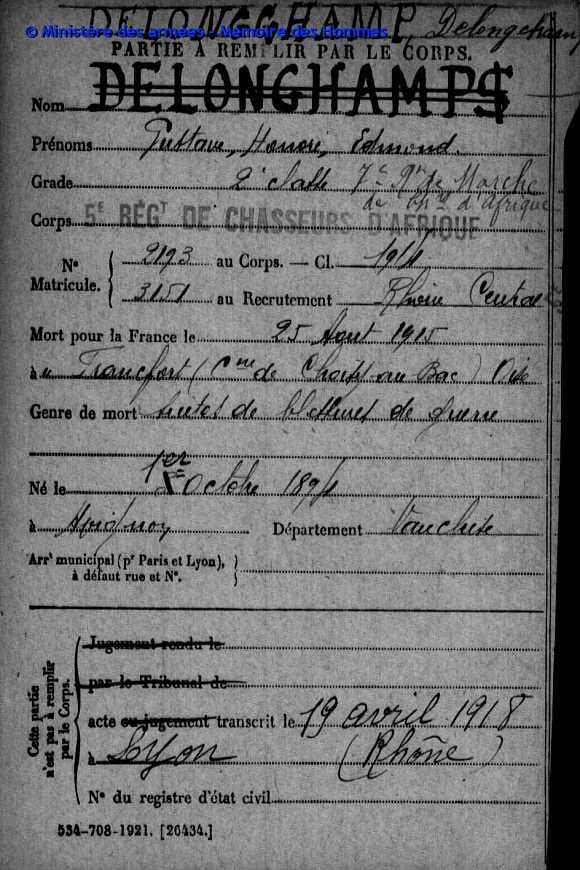 DELONGCHAMP, Delongchamp
© Ministère des armées - Mémoire des Hommes
PARTIE À REMPLIR PAR LE CORPS.
Nom DELONGHAMPS
Prénoms Gustave, Honoré, Edmond.
Grade 2e classe 7e Rt de Marche
de d'afrique
Corps 5E RÉGT DE CHASSEURS D'AFRIQUE
No Matricule.
2193 au Corps. — Cl. 1914
3151 au Recrutement Rhône Central
Mort pour la France le 25 Aout 1915
à Francfort (Cne de Choisy-au-Bac) Oise
Genre de mort suites de blessures de guerre
Né le 1er Octobre 1894
à Avignon Département Vaucluse
Arrt municipal (pr Paris et Lyon),
à défaut rue et No.
Cette partie n'est pas à remplir par le Corps.
Jugement rendu le
par le Tribunal de
acte ou jugement transcrit le 19 avril 1918
à Lyon (Rhône)
No du registre d'état civil
534-708-1921. [26434.]